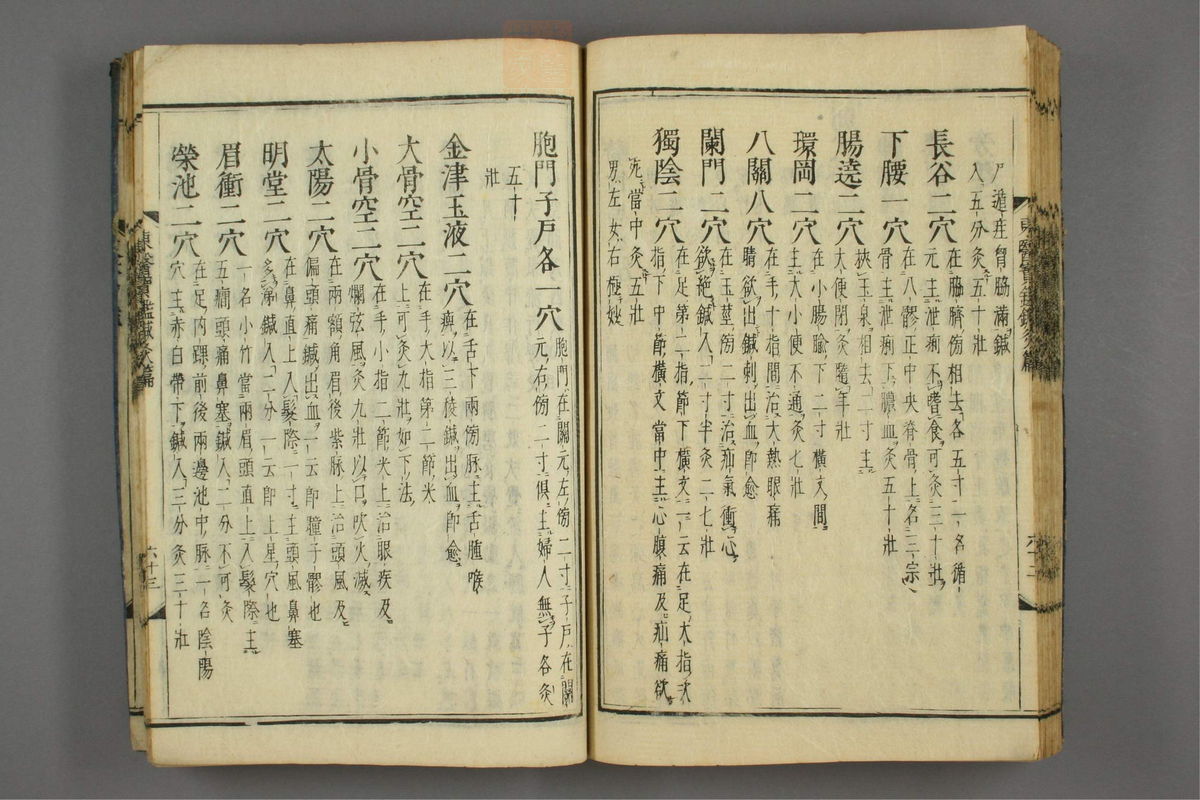 尸遁疰胷脇滿鍼
入五分灸五十壯
長谷二穴在脇臍傍相去各五寸一名循
元主泄痢不嗜食可灸三十壯
下腰一穴在八髎正中央脊骨上名三宗
骨主泄痢下膿血灸五十壯
腸遶二穴挾玉泉相去二寸主
大便閉灸隨年壯
環岡二穴在小腸腧下二寸橫文間
主大小便不通灸七壯
八關八穴在手十指間治大熱眼痛
睛欲出鍼刺出血卽愈
闌門二穴在玉莖傍二寸治疝氣衝心
欲絶鍼入二寸半灸二七壯
獨陰二穴在足第二指節下橫文一云在足大指次
指下中節橫文當中主心腹痛及疝痛欲
死當中灸五壯
男左女右極妙
胞門子戶各一穴胞門在關元左傍二寸子戶在關
元右傍二寸俱主婦人無子各灸
五十
壯
金津玉液二穴在舌下兩傍脉主舌腫喉
痺以三稜鍼出血卽愈
大骨空二穴在手大指第二節尖
上可灸九壯如下法
小骨空二穴在手小指二節尖上治眼疾及
爛弦風灸九壯以口吹火滅
太陽二穴在兩額角眉後紫脉上治頭風及
偏頭痛鍼出血一云卽瞳子髎也
明堂二穴在鼻直上入髮際一寸主頭風鼻塞
多涕鍼入二分一云卽上星穴也
眉衝二穴一名小竹當兩眉頭直上入髮際主
五癎頭痛鼻塞鍼入二分不可灸
榮池二穴在足內踝前後兩邊池中脉一名陰陽
穴主赤白帶下鍼入三分灸三十壯
東醫寶鑑鍼灸篇
六十三